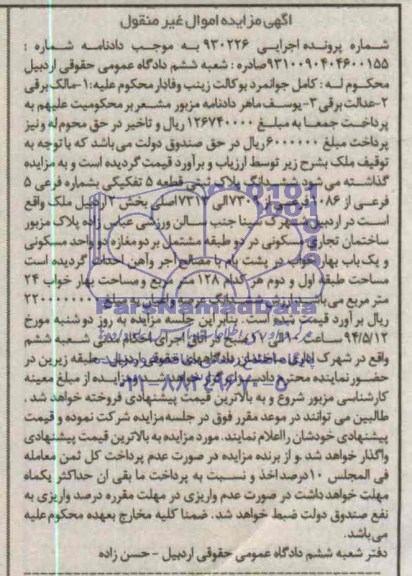 آگهی مزایده اموال غیر منقول
شماره پرونده اجرایی ۹۳۰۲۲۶ به موجب دادنامه شماره :
۹۳۱۰۰۹۰۴۰۴۶۰۰۱۵۵ صادره : شعبه ششم دادگاه عمومی حقوقی اردبیل
محکوم له : کامل جوانمرد بوکالت زینب وفادار محکوم علیه: ۱-مالک برقی
۲-عدالت برقی ۳-یوسف ماهر دادنامه مزبور مشعر بر محکومیت علیهم به
پرداخت جمعا به مبلغ ۱۲۶۷۴۰۰۰۰ ریال و تاخیر در حق محوم له ونیز
پرداخت مبلغ ۶۰۰۰۰۰۰ ریال در حق صندوق دولت می باشد که با توجه به
توقیف ملک بشرح زیر توسط ارزیاب و برآورد قیمت گردیده است و به مزایده
گذاشته می شود ششدانگ پلاک ثبتی قطعه ۵ تفکیکی بشماره فرعی ۵
فرعی از ۱۰۸۶ فرعی از ۷۳۰۹ الی ۷۳۱۲ اصلی بخش ۳ اردبیل ملک واقع
است در اردبیل شهرک سینا جنب سالن ورزشی عباس زاده پلاک مزبور
ساختمان تجاری مسکونی در دو طبقه مشتمل بر دو مغازه دو واحد مسکونی
و یک باب بهار خواب در پشت بام با مصالح آجر وآهن احداث گردیده است
مساحت طبقه اول و دوم هر کدام ۱۲۸ متر مربع و مساحت بهار خواب ۲۴
متر مربع می باشد ارزش ششدانگ عرصه و اعیان به مبلغ
ریال بر آورد قیمت شده است بنابر این جلسه مزایده به روز دو شنبه مورخ
۹۴/۵/۱۲ ساعت ۱۰ الی صبح در اتاق اجرای احکام مدنی شعبه ششم
واقع در شهرک اداری ساختمان دادگاه های حقوقی اردبیل طبقه زیرین در
حضور نماینده محترم دادستان مزایده از مبلغ معینه
کارشناسی مزبور شروع و به بالاترین قیمت پیشنهادی فروخته خواهد شد .
طالبین می توانند در موعد مقرر فوق در جلسه مزایده شرکت نموده و قیمت
پیشنهادی خودشان را اعلام نمایند. مورد مزایده به بالاترین قیمت پیشنهادی
واگذار خواهد شد .و از برنده مزایده در صورت عدم پرداخت کل ثمن معامله
فی المجلس ۱۰درصد اخذ و نسبت به پرداخت ما بقی ان حداکثر یکماه
مهلت خواهد داشت در صورت عدم واریزی در مهلت مقرره درصد واریزی به
نفع صندوق دولت ضبط خواهد شد . ضمنا کلیه مخارج بعهده محکوم علیه
می باشد.
دفتر شعبه ششم دادگاه عمومی حقوقی اردبیل - حسن زاده
ParsNamadData
۰۲۱-۸۸۳۴۹۶۷۰-۵